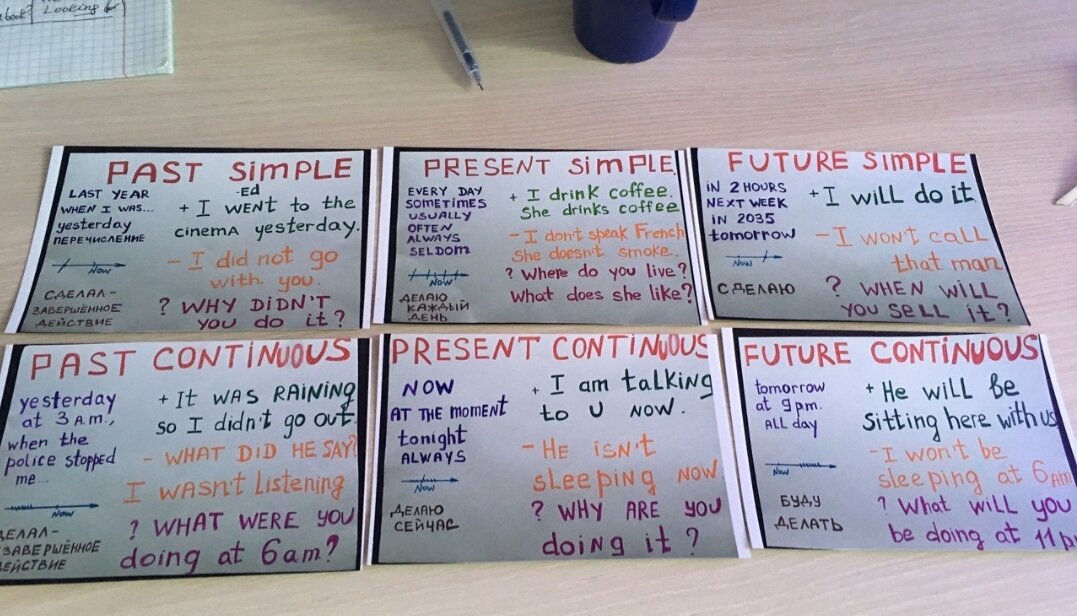 book? Looking for
PAST SiMPLE
LAST YEAR
WHEN I WAS...
yesterday
ПЕРЕЧИСЛЕНИЕ
Now
СДЕЛАЛ-
ЗАВЕРШЁННОЕ
ДЕЙСТВИЕ
-ED
+ I WENT to the
cinema yesterday.
- I did not go
with you.
? WHY DiDN'T
you do it?
PRESENT SiMPLE
EVERY DAY
SOMETIMES
USUALLY
OFTEN
ALWAYS
SELDOM
Now
ДЕЛАЮ
КАЖДЫЙ
ДЕНЬ
+ I drink coffee.
She drinks coffee
- I don't speak French
She doesn't smoke.
? Where do you live?
What does she like?
FUTURE SiMPLE
iN 2 HOURS
NEXT WEEK
IN 2035
tomorrow
Now
СДЕЛАЮ
+ I will do it
- I WON'T CALL
that man
? WHEN WiLL
YOU SELL iT?
PAST CONTiNUOUS
yesterday
at 3 A.M.,
when the
police stopped
me...
Now
ДЕЛАЛ-
ЗАВЕРШЁННОЕ
ДЕЙСТВИЕ
+ It WAS RAiNiNG
so I didn't go out.
- WHAT DiD HE SAY?
I WASN't Listening
? WHAT WERE YOU
doing at 6am?
PRESENT CONTiNUOUS
NOW
AT THE MOMENT
tonight
ALWAYS
Now
ДЕЛАЮ
СЕЙЧАС
+ I am talking
to U NOW.
- HE iSN't
sleeping NOW
? WHY ARE YOU
doing it?
FUTURE CONTiNUOUS
tomorrow
at 9 pm.
ALL day
Now
БУДУ
ДЕЛАТЬ
+ He will be
sitting here with us
- I won't be
sleeping at 6am
? What will you
be doing at 11 p